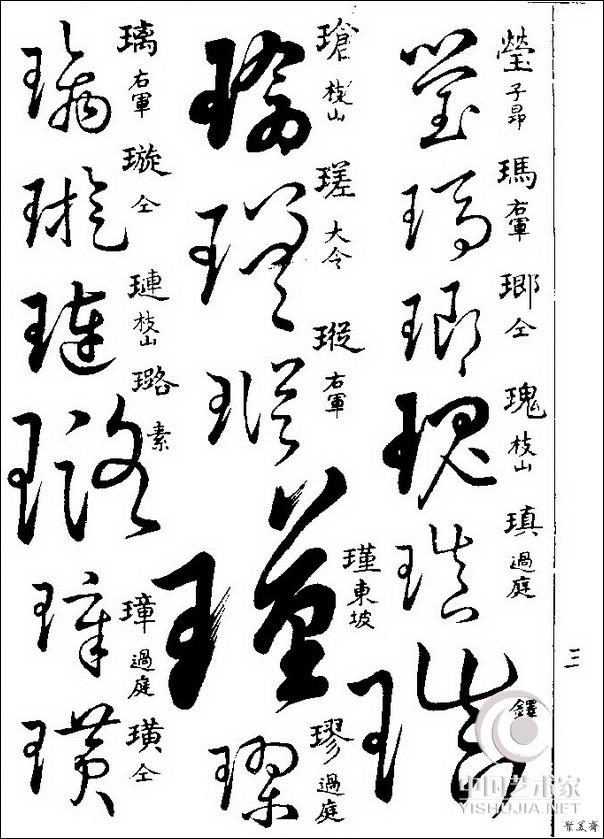 瑩 子昂
瑪 右軍
瑯 仝
瑰 枝山
瑱 過庭
鐸
瑲 枝山
瑳 大令
瑽 右軍
瑾 東坡
璆 過庭
璃 右軍
璇 仝
璉 枝山
璐 素
璋 過庭
璜 仝
三
中国艺术家
YISHUJIA.NET